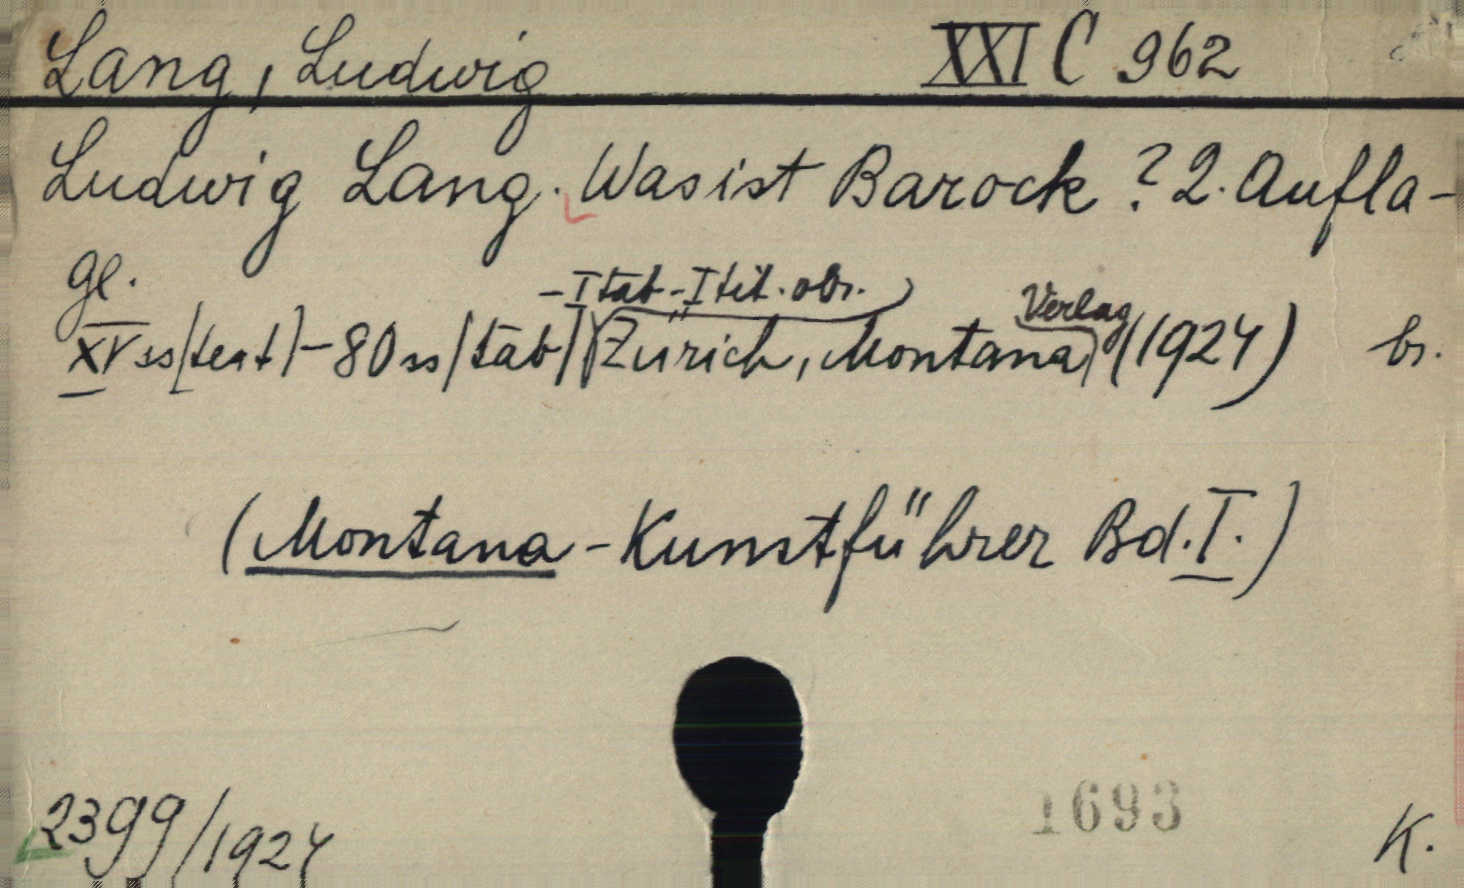 Lang, Ludwig XXI C 962
Ludwig Lang. Was ist Barock? 2. Aufla-
ge.
-I tab-I tit. obr. Verlag
XV ss/text/-80 ss/tab/ Zürich, Montana (1924) br.
(Montana-Kunstführer Bd. I.)
2399/1924 1693 K.